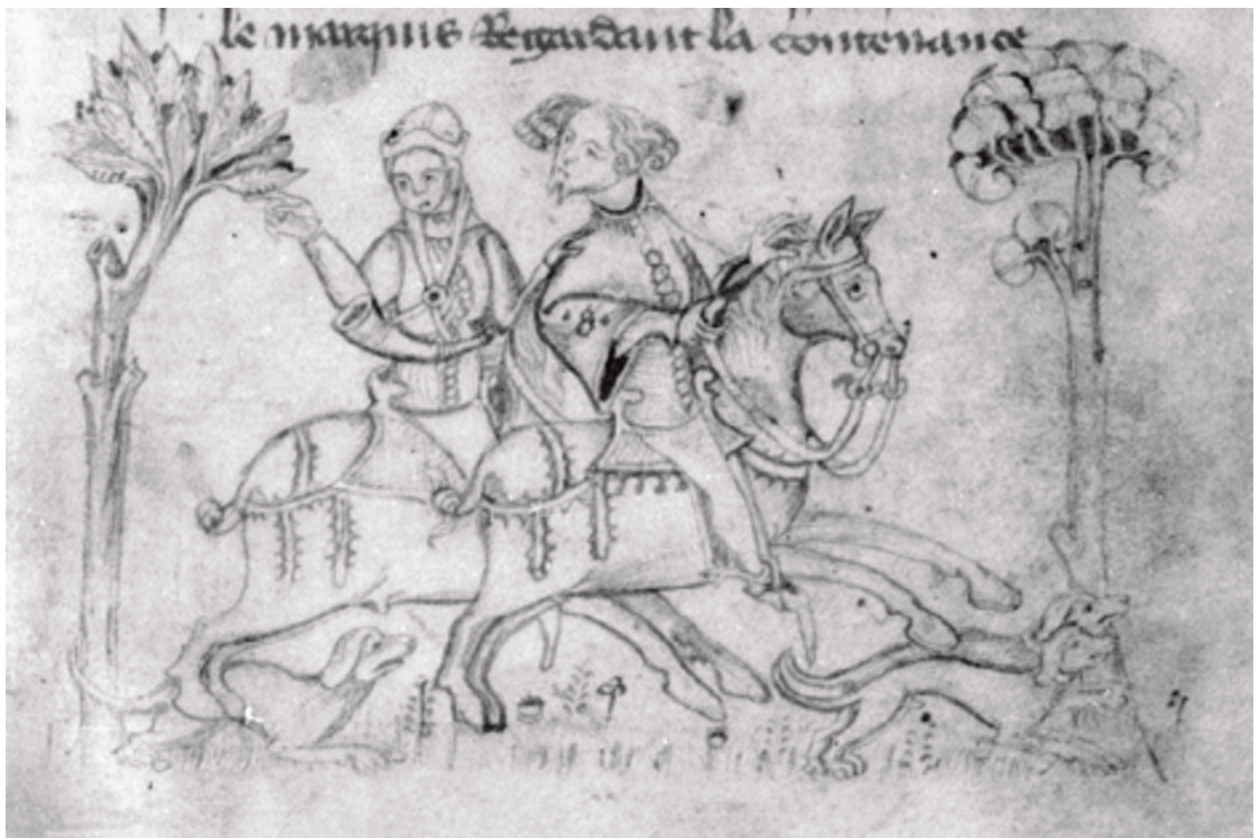 le marquis Regardant la contenance